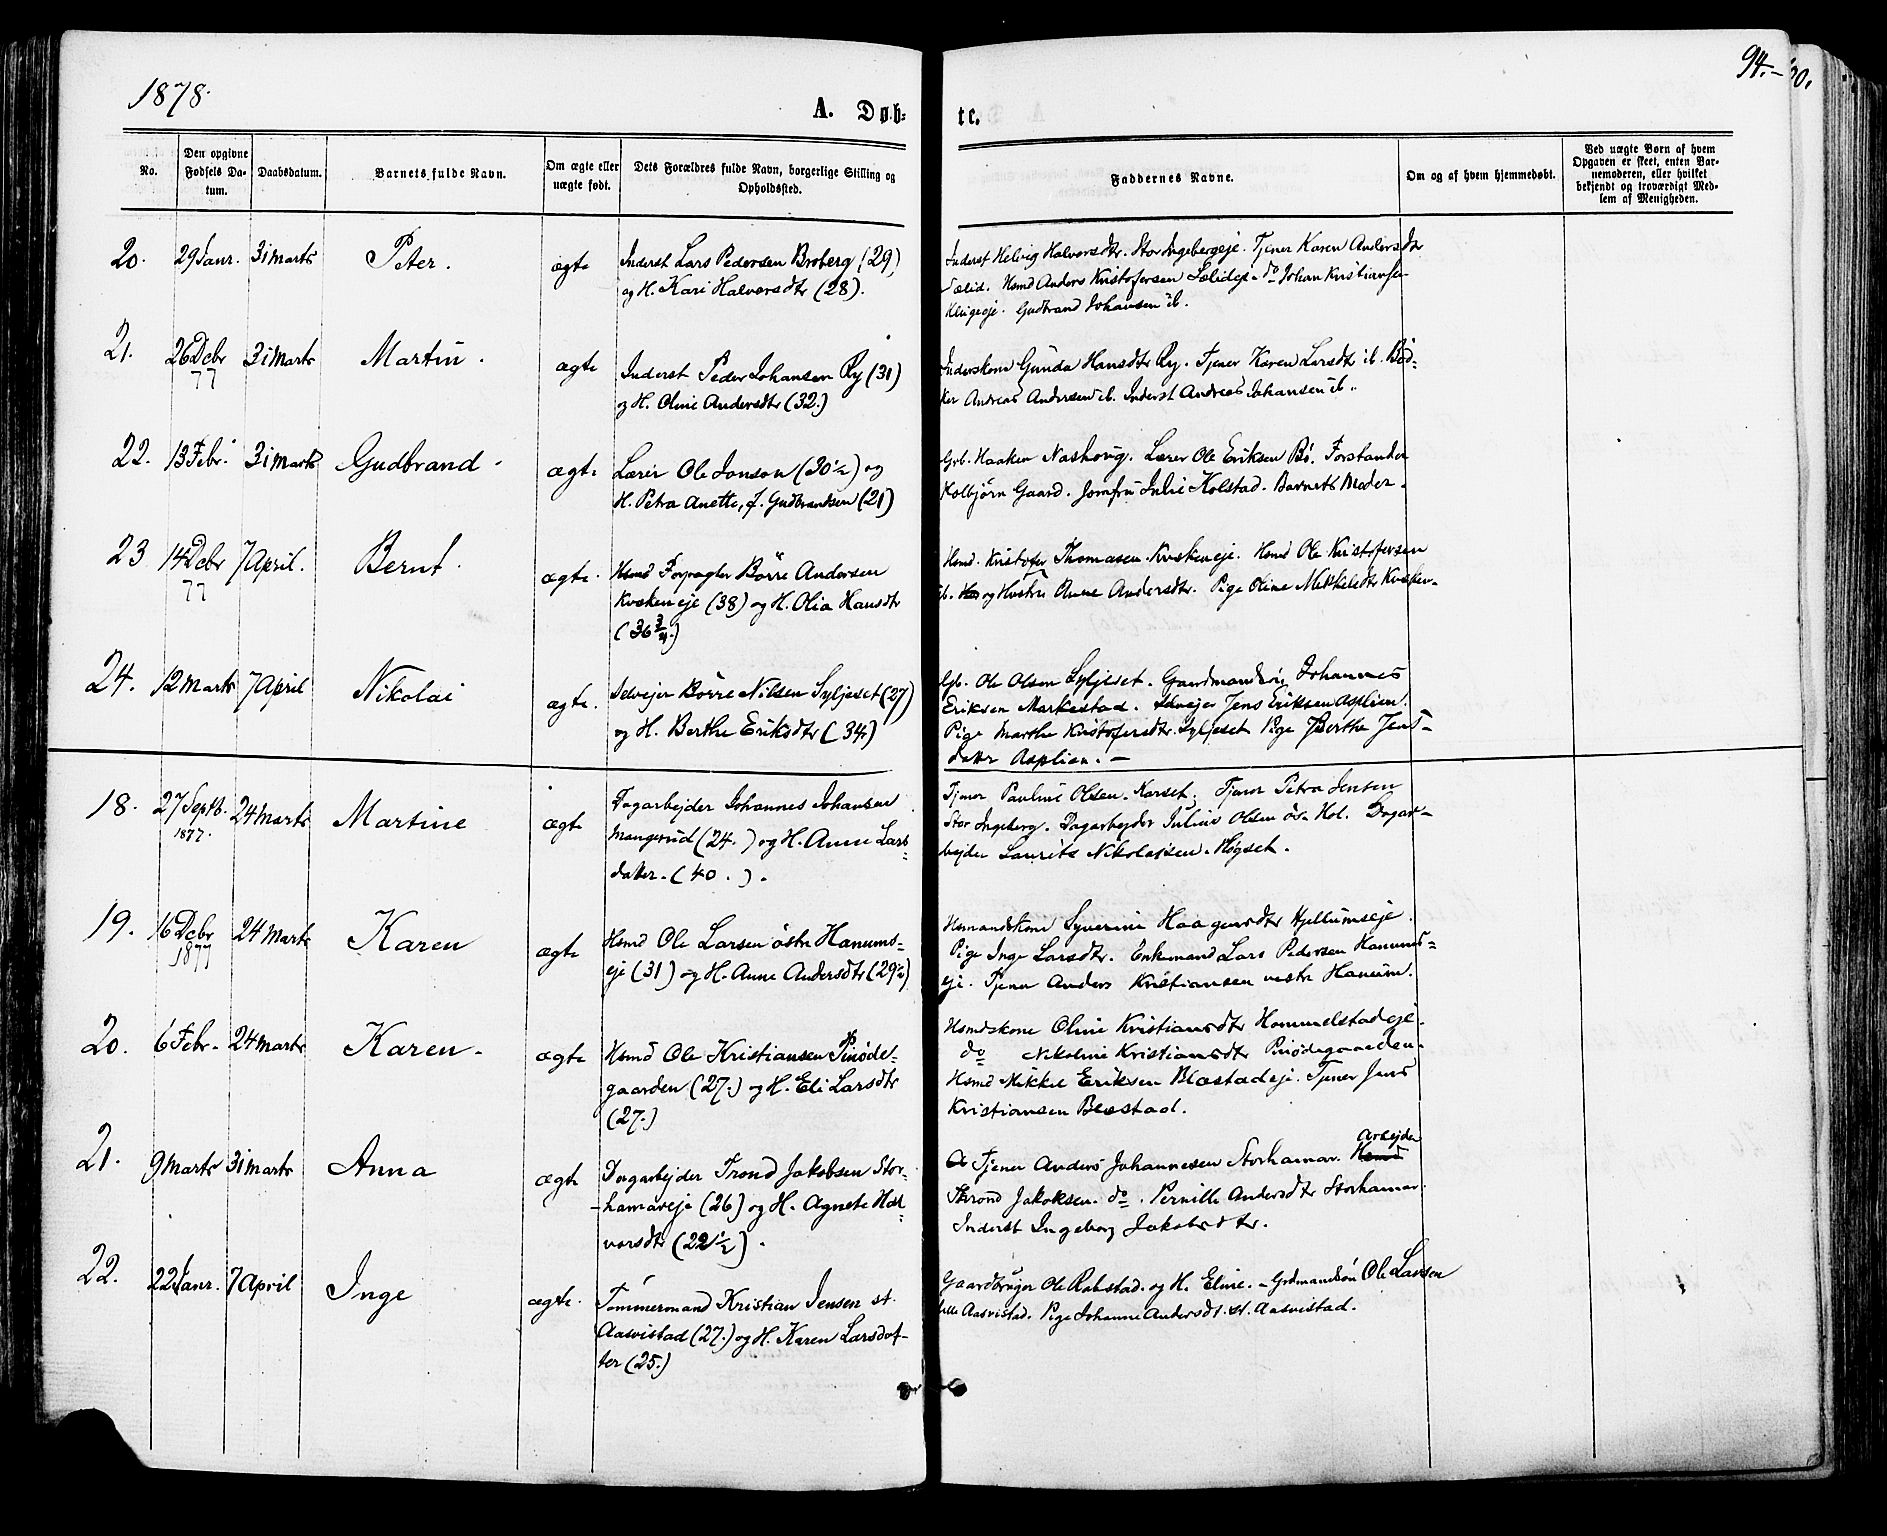 1878.
94.-
00.
A. Døb-
te.
No.
Den opgivne Fødsels Da-tum.
Daabsdatum.
Barnets fulde Navn.
Om ægte eller uægte født.
Dets Forældres fulde Navn, borgerlige Stilling og Opholdssted.
Faddernes Navne.
Om og af hvem hjemmedøbt.
Ved uægte Børn af hvem Opgaven er skeet, enten Bar-nemoderen, eller hvilket bekjendt og troværdigt Med-lem af Menigheden.
20. 29 Janr. 31 Marts Peter. ægte Inderst Lars Pedersen Broberg (29)
og H. Kari Halvorsdtr (28).
Inderst Helvig Halvorsdtr. Stor Ingebergeje. Tjener Karen Andersdtr
Sælid. Hsmd Anders Kristofersen Sælideje - do Johan Kristiansen
Klugeeje. Gudbrand Johansen ib.
21. 26 Debr 77 31 Marts Martin. ægte Inderst Peder Johansen Ry (31)
og H. Oline Andersdtr (32.)
Inderskone Gunda Hansdtr Ry. Tjener Karen Larsdtr ib. Bød-
ker Andreas Andersen ib. Inderst Andreas Johansen ib.
22. 13 Febr. 31 Marts Gudbrand. ægte Lærer Ole Jonson (30 1/2) og
H. Petra Anette, f. Gudbrandsen (21)
Grb. Haaken Nashoug. Lærer Ole Eriksen Bø. Forstander
Kolbjørn Gaard. Jomfru Julie Kolstad. Barnets Moder.
23 14 Debr 77 7 April. Bernt. ægte. Hsmd Forpagter Børre Andersen
Kvækeneje (38) og H. Olia Hansdtr
(36 3/4.)
Hsmd. Kristofer Thomasen Kvækeneje. Hsmd Ole Kristofersen
ib. og Hustru Anne Andersdtr. Pige Oline Mikkelsdtr Kvæken-
24. 12 Marts 7 April Nikolai ægte. Selvejer Børre Nilsen Syljeset (27)
og H. Berthe Eriksdtr (34.)
Gb. Ole Olsen Syljeset. Gaardmandsøn Johannes
Eriksen Markestad. Selvejer Jens Eriksen Asplien.
Pige Marthe Kristofersdtr. Syljeset Pige Berthe Jens-
datter Asplien. -
18. 27 Septb. 1877. 24 Marts Martine ægte Dagarbejder Johannes Johansen
Mangerud (24.) og H. Anne Lars-
datter. (40.).
Tjener Pauline Olsen. Karset. Tjener Petra Jensen
Stor Ingeberg. Dagarbejder Julius Olsen ös. Hol. Dagar-
bejder Laurits Nikolaisen. Høgset.
19. 16 Debr 1877 24 Marts Karen ægte Hsmd Ole Larsen østre Hanums-
eje (31) og H. Anne Andersdtr (29 1/2)
Hsmandskone Syverine Haagensdtr Hjellumseje.
Pige Inge Larsdtr. Enkemand Lars Pedersen Hanums-
eje. Tjener Anders Kristiansen vestre Hanum.
20. 6 Febr. 24 Marts Karen. ægte Hsmd Ole Kristiansen Pinøde-
gaarden (27.) og H. Eli Larsdtr
(27.)
Hsmdskone Oline Kristiansdtr Hommelstadeje.
do Nikoline Kristiansdtr Pinødegaarden.
Hsmd Mikkel Eriksen Blæstadeje. Tjener Jens
Kristiansen Blæstad.
21. 9 Marts 31 Marts Anna ægte Dagarbejder Trond Jakobsen Stor-
hamareje (26) og H. Agnete Hal-
vorsdtr (22 1/2).
Tjener Anders Johannesen Storhamar. Hsmd Arbejder
Thrond Jakobsen. do. Pernille Andersdtr Storhamar.
Inderst Ingeborg Jakobsdtr.
22. 22 Janr. 7 April Inge ægte. Tømmermand Kristian Jensen st.
Aasvistad (27.) og H. Karen Larsdat-
ter (25.)
Gaardbruger Ole Rabstad. og H. Eline. - Grdmandsøn Ole Larsen
lille Aasvistad. Pige Johanne Andersdt. st. Aasvistad.